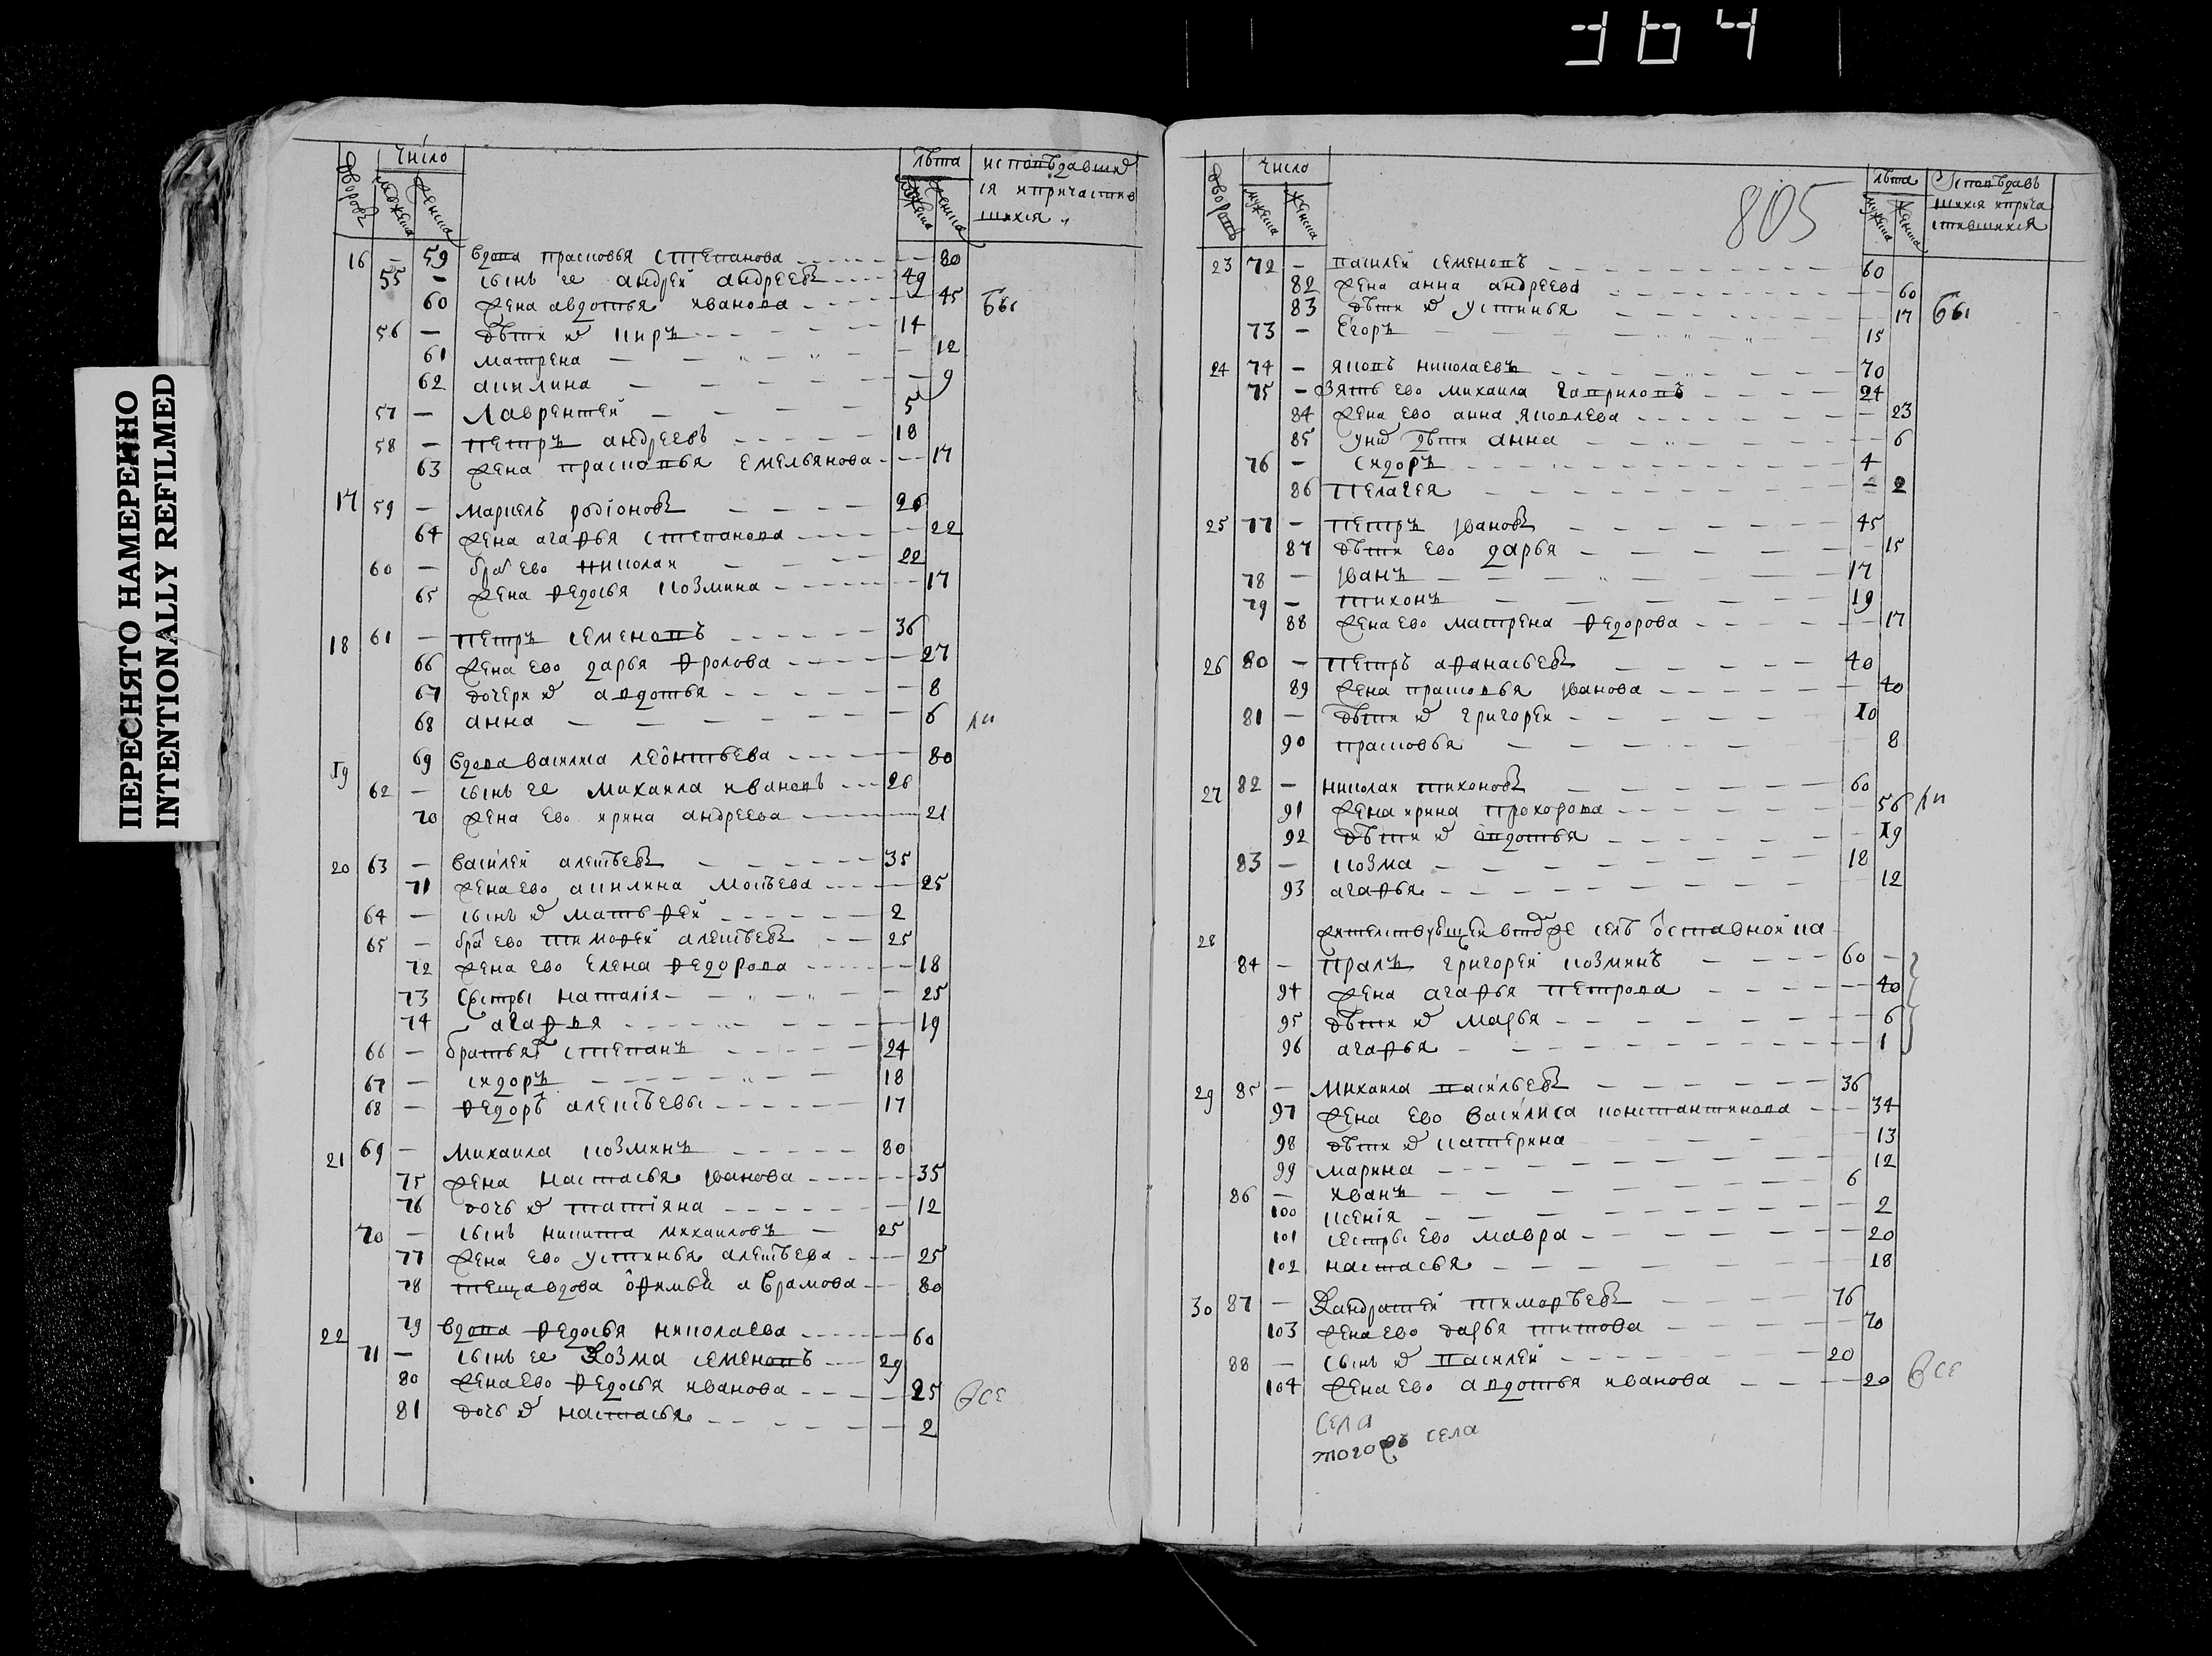 364
ПЕРЕСНЯТО НАМЕРЕННО
INTENTIONALLY REFILMED
дворовъ число мужеска женска лѣта мужеска женска исповѣдавших
ся и причастив
шихся
16 – 59 вдова прасковья степанова 80
55 – сынъ ее андрей андреевъ 49
60 жена авдотья иванова 45 бы
56 – дѣти их киръ 14
61 матрена 12
62 акилина 9
57 – лаврентей 5
58 – петръ андреевъ 18
63 жена прасковья емельянова 17
17 59 – маркелъ родіоновъ 26
64 жена агафья степанова 22
60 – брат ево николаи 22
65 жена федосья козмина 17
18 61 – петръ семеновъ 36
66 жена ево дарья фролова 27
67 дочери их авдотья 8
68 анна 6
19 69 вдова василиса леонтьева 80
62 – сынъ ее михаила ивановъ 26
70 жена ево ирина андреева 21
20 63 – василей алеѯѣевъ 35
71 жена ево акилина мосѣева 25
64 – сынъ их матвфей 2
65 – брат ево тимофей алеѯѣевъ 25
72 жена ево елена федорова 18
73 сестры наталія 25
74 агафья 19
66 – братья степанъ 24
67 – сидоръ 18
68 – федоръ алеѯѣевы 17
21 69 – михаила козминъ 80
75 жена настасья иванова 35
76 дочь их татіяна 12
70 – сынъ никита михаиловъ 25
77 жена ево устинья алеѯѣева 25
78 теща вдова офимья аврамова 80
22 79 вдова федосья николаева 60
71 – сынъ ее козма семеновъ 29
80 жена ево федосья иванова 25 все
81 дочь их настасья 2
805
дворовъ число мужеска женска лѣта мужеска женска исповѣдав
шихся и прича
стившихся
23 72 – василей семеновъ 60
82 жена анна андреева 60
83 дѣти их устинья 17 бы
73 – егоръ 15
24 74 – яковъ николаевъ 70
75 – зять ево михаила гавриловъ 24
84 жена ево анна яковлева 23
85 у них дѣти анна 6
76 – сидоръ 4
86 пелагея 2
25 77 – петръ ивановъ 45
87 дѣти ево дарья 15
78 – иванъ 17
79 – тихонъ 19
88 жена ево матрена федорова 17
26 80 – петръ афанасьевъ 40
89 жена прасковья иванова 40
81 – дѣти их григореи 10
90 прасковья 8
27 82 – николаи тихоновъ 60
91 жена ирина прохорова 56
92 дѣти их авдотья 19
83 – козма 18
93 агафья 12
28 жителствующей в том же селѣ оставной ка
84 – пралъ григорей козминъ 60
94 жена агафья петрова 40
95 дѣти их марья 6
96 агафья 1
29 85 – михаила васильевъ 36
97 жена ево василиса константинова 34
98 дѣти их катерина 13
99 марина 12
86 – иванъ 6
100 ксенія 2
101 сестры ево мавра 20
102 настасья 18
30 87 – кандратей тимофѣевъ 76
103 жена ево дарья титова 70
88 – сынъ их василей 20
104 жена ево авдотья иванова 20 все
села
того жъ села